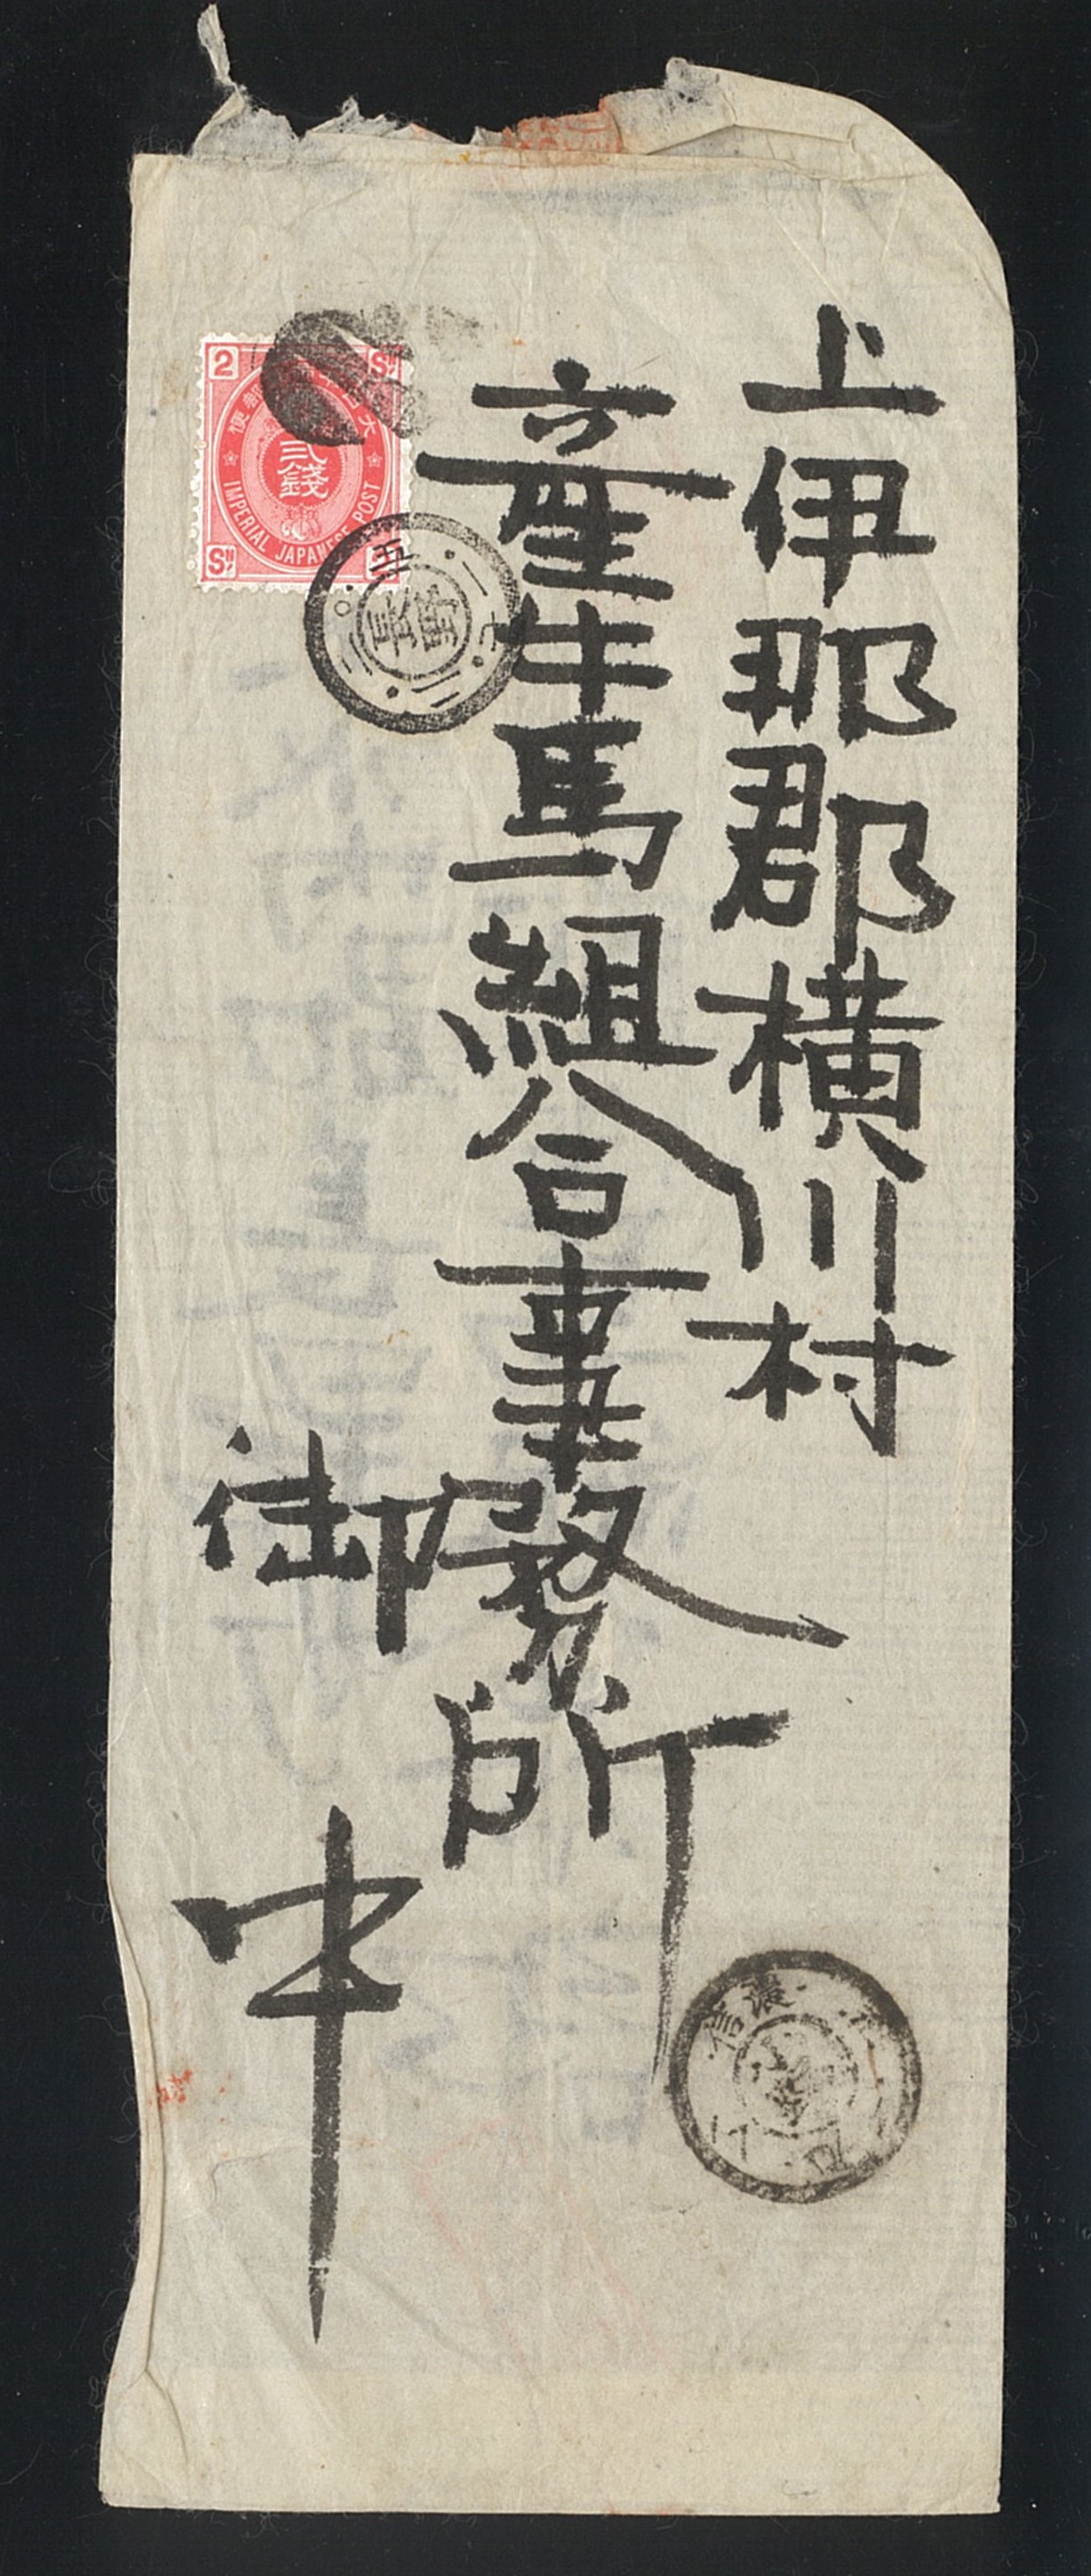 上伊那郡横川村
産牛馬組合事務所
御中
2
Sɴ
大日本帝国郵便
弐銭
IMPERIAL JAPANESE POST
Sɴ
長野
信濃